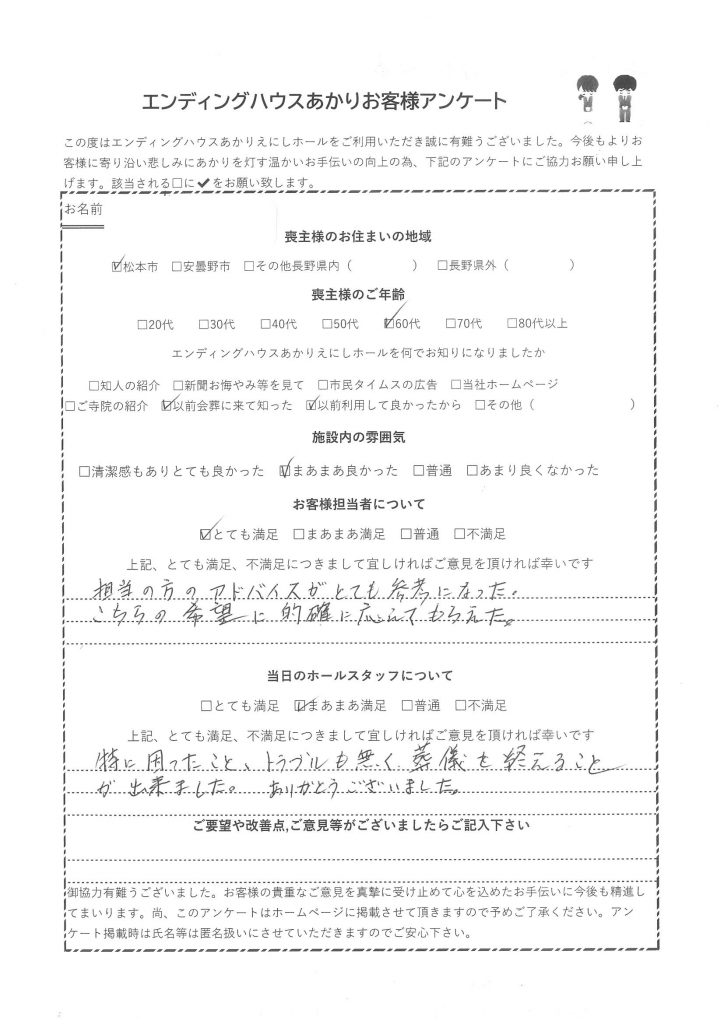 エンディングハウスあかりお客様アンケート
この度はエンディングハウスあかりえにしホールをご利用いただき誠に有難うございました。今後もよりお
客様に寄り沿い悲しみにあかりを灯す温かいお手伝いの向上の為、下記のアンケートにご協力お願い申し上
げます。該当される□に✔をお願い致します。
お名前
喪主様のお住まいの地域
☑松本市 □安曇野市 □その他長野県内（ ） □長野県外（ ）
喪主様のご年齢
□20代 □30代 □40代 □50代 ☑60代 □70代 □80代以上
エンディングハウスあかりえにしホールを何でお知りになりましたか
□知人の紹介 □新聞お悔やみ等を見て □市民タイムスの広告 □当社ホームページ
□ご寺院の紹介 ☑以前会葬に来て知った ☑以前利用して良かったから □その他（ ）
施設内の雰囲気
□清潔感もありとても良かった ☑まあまあ良かった □普通 □あまり良くなかった
お客様担当者について
☑とても満足 □まあまあ満足 □普通 □不満足
上記、とても満足、不満足につきまして宜しければご意見を頂ければ幸いです
担当の方のアドバイスがとても参考になった。
こちらの希望に的確に応えてもらえた。
当日のホールスタッフについて
□とても満足 ☑まあまあ満足 □普通 □不満足
上記、とても満足、不満足につきまして宜しければご意見を頂ければ幸いです
特に困ったこと、トラブルも無く葬儀を終えること
が出来ました。 ありがとうございました。
ご要望や改善点,ご意見等がございましたらご記入下さい
御協力有難うございました。お客様の貴重なご意見を真摯に受け止めて心を込めたお手伝いに今後も精進し
てまいります。尚、このアンケートはホームページに掲載させて頂きますので予めご了承ください。アン
ケート掲載時は氏名等は匿名扱いにさせていただきますのでご安心下さい。